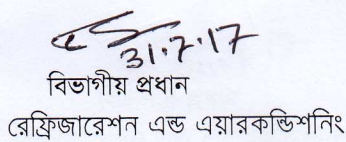 31.7.17
বিভাগীয় প্রধান
রেফ্রিজারেশন এন্ড এয়ারকন্ডিশনিং